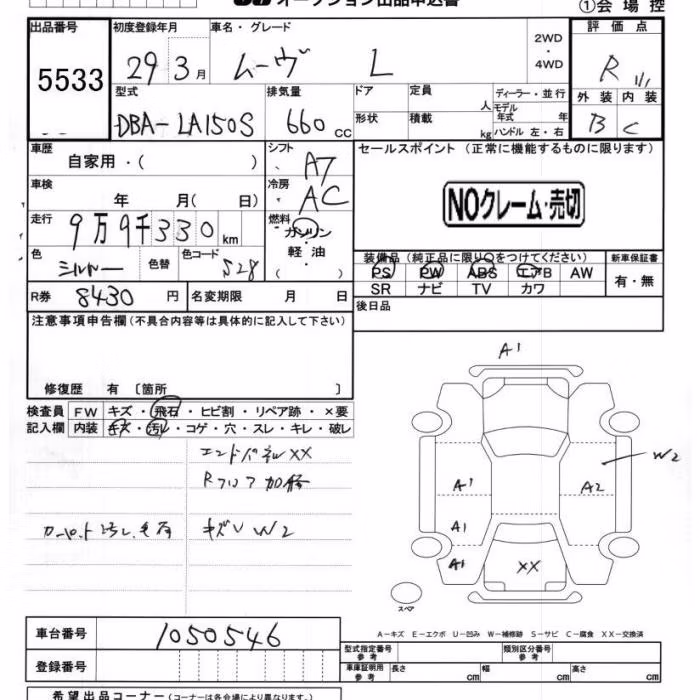 オークション出品申込書
①会場控
出品番号 初度登録年月 車名・グレード 2WD・4WD 評価点
5533 29年3月 ムーヴ L R 1/1
型式 排気量 ドア 定員 人 ディーラー・並行 外装 内装
DBA-LA150S 660cc 形状 積載 kg モデル年式 年 ハンドル 左・右 B C
車歴 シフト セールスポイント (正常に機能するものに限ります)
自家用・( ) A7
車検 冷房 NOクレーム・売切
年 月( 日) AC
走行 燃料
9万9千330km ガソリン
色 色替 色コード 軽油 装備品 (純正品に限り○をつけてください) 新車保証書
シルバー 528 ( ) PS PW ABS エアB AW 有・無
SR ナビ TV カワ
R券 8430円 名変期限 月 日 後日品
注意事項申告欄(不具合内容等は具体的に記入して下さい)
修復歴 有 〔箇所 〕
検査員 FW キズ・飛石・ヒビ割・リペア跡・×要
記入欄 内装 キズ・汚レ・コゲ・穴・スレ・キレ・破レ
エンドパネルXX
Rフロア加修
カーペット汚レ
キズU W2
A1
W2
A1 A2
A1
A1 XX
スペア
A-キズ E-エクボ U-凹み W-補修跡 S-サビ C-腐食 XX-交換済
車台番号 1050546
型式指定番号 参考 類別区分番号 参考
登録番号 車庫証明用 参考 長さ cm 幅 cm 高さ cm
希望出品コーナー(コーナーは各会場により異なります。)